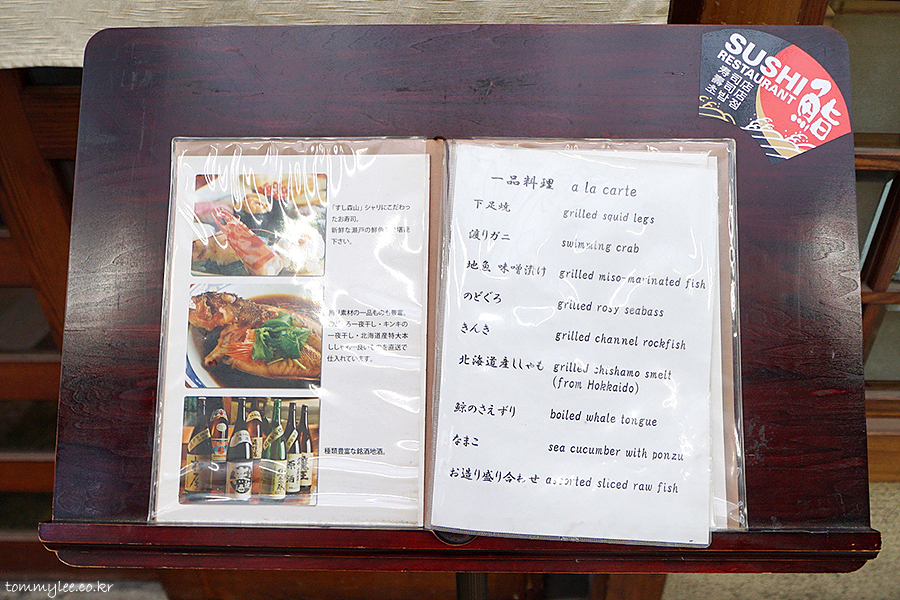 SUSHI
RESTAURANT
寿司店
壽司店
초밥점
鮨
「すし森山」シャリにこだわっ
たお寿司。
新鮮な瀬戸の鮮魚
下さい。
素材の一品ものも豊富。
一夜干し・キンキの
一夜干し・北海道産特大本
を直送で
仕入れています。
種類豊富な銘酒地酒。
一品料理 a la carte
下足焼 grilled squid legs
渡りガニ swimming crab
地魚 味噌漬け grilled miso-marinated fish
のどぐろ grilled rosy seabass
きんき grilled channel rockfish
北海道産ししゃも grilled chishamo smelt
(from Hokkaido)
鯨のさえずり boiled whale tongue
なまこ sea cucumber with ponzu
お造り盛り合わせ assorted sliced raw fish
tommylee.co.kr